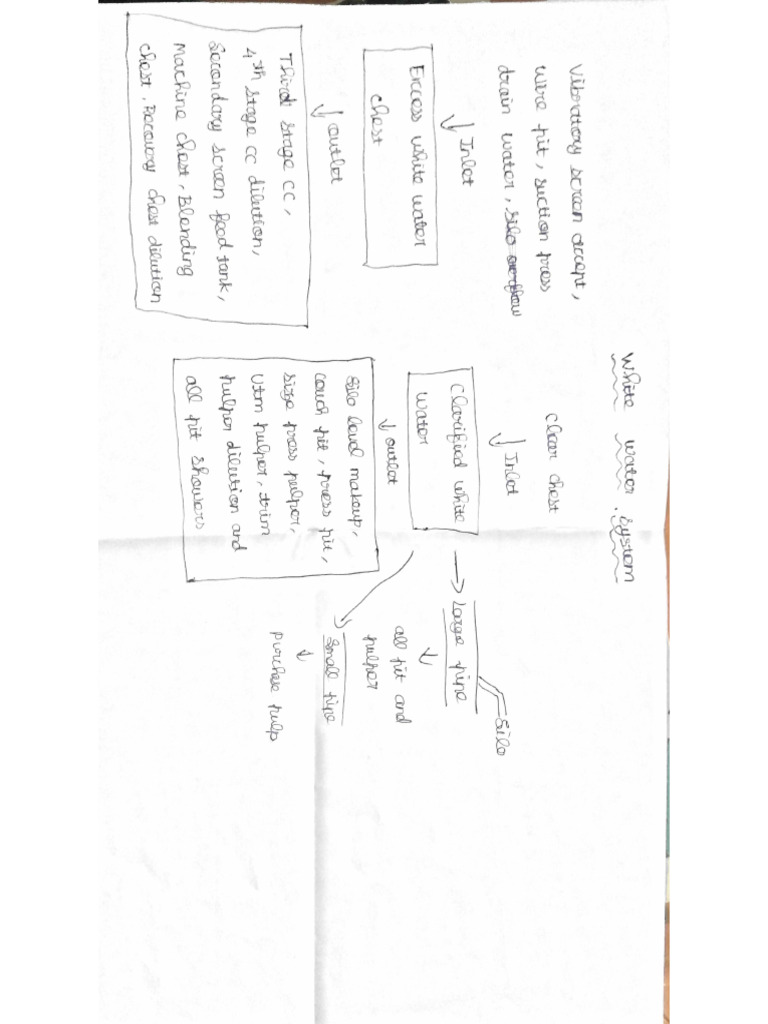 White water System
Vibratory screen accept,
wire pit, suction press
drain water, silo overflow
↓ Inlet
Excess white water
chest
↓ outlet
Third stage cc,
4th stage cc dilution,
Secondary screen feed tank,
Machine chest, Blending
chest, Recovery chest dilution
Clear chest
↓ Inlet
Clarified white
water
↓ outlet
Silo level makeup,
couch pit, press pit,
size press pulper,
UTM pulper, trim
pulper dilution and
all pit showers
→ Large pipe
Silo
↓
all pit and
pulper
Small pipe
↓
purchase pulp